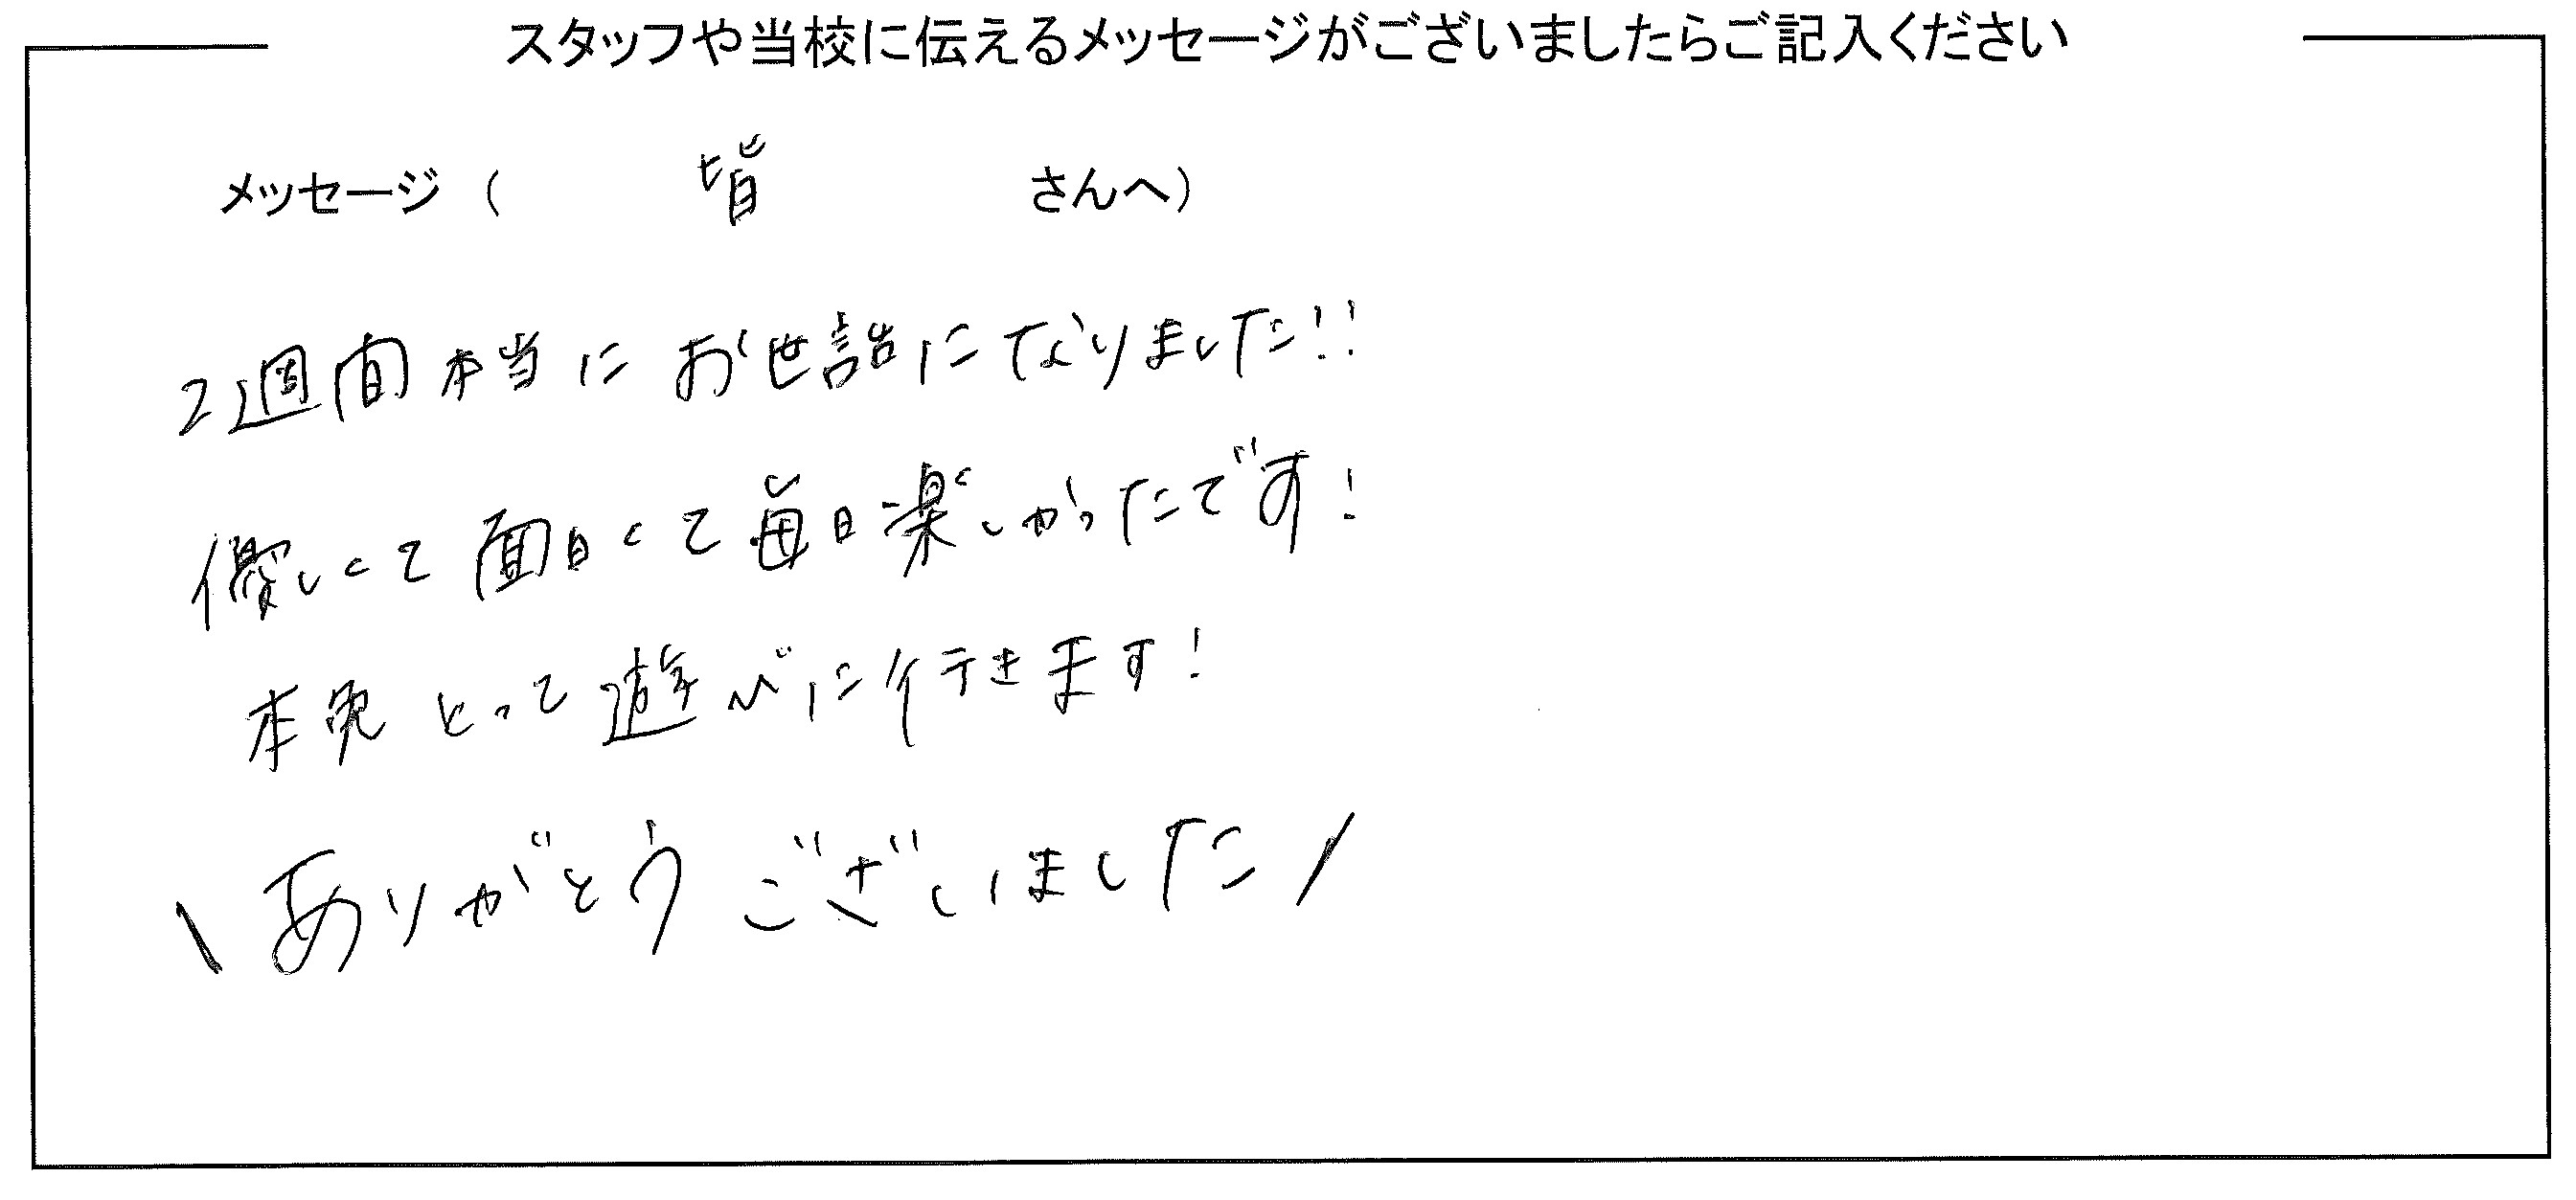 スタッフや当校に伝えるメッセージがございましたらご記入ください
メッセージ（ 皆 さんへ）
2週間本当にお世話になりました!!
優しくて面白くて毎日楽しかったです!
本免とって遊びに行きます!
\ありがとうございました/